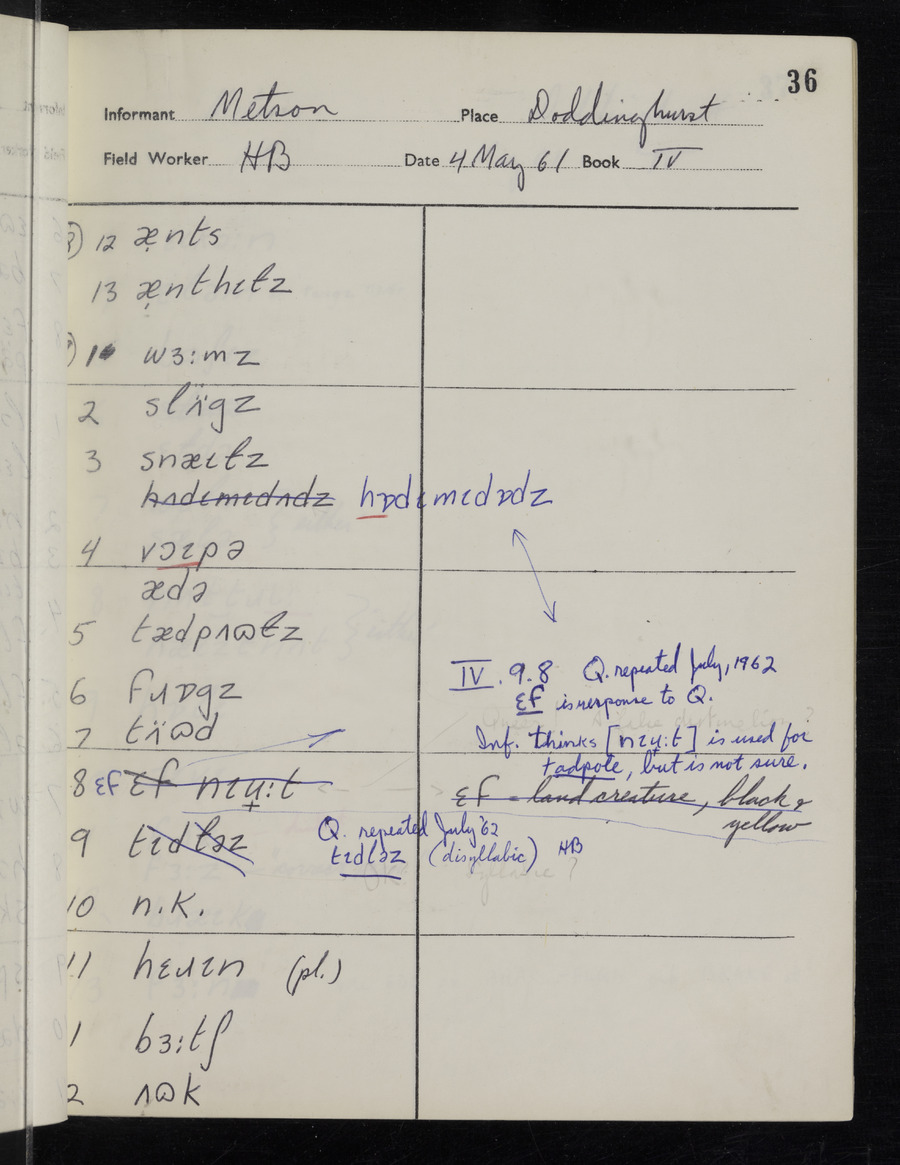 36
Informant Metson Place Doddinghurst
Field Worker HB Date 4 May 61 Book IV
12 æ̣nts
13 æ̣nthɩtz
1 wɜ:mz
2 slʌ̈gz
3 snæɩtz
hʌdɛmɛdʌdz hɒdɛmɛdɒdz
4 vɔɩpə
ædə
5 tædpʌɷtz
6 fɹɒgz
7 tʌ̈ɷd
IV. 9.8 Q. repeated July, 1962
ɛf is response to Q.
Inf. thinks [nɩɥ:t] is used for
tadpole, but is not sure.
8 ɛf ɛf nɩɥ:t
ɛf = land creature, black &
yellow
9 tɩdləz Q. repeated July '62
tɩdləz (disyllabic) HB
10 n.k.
11 hɛɹɩn (pl.)
1 bɜ:tʃ
2 ʌɷk